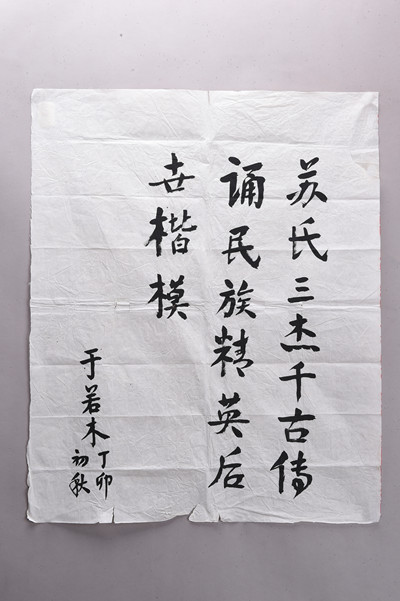 苏氏三杰千古传
诵民族精英后
世楷模
于若木丁卯
初秋